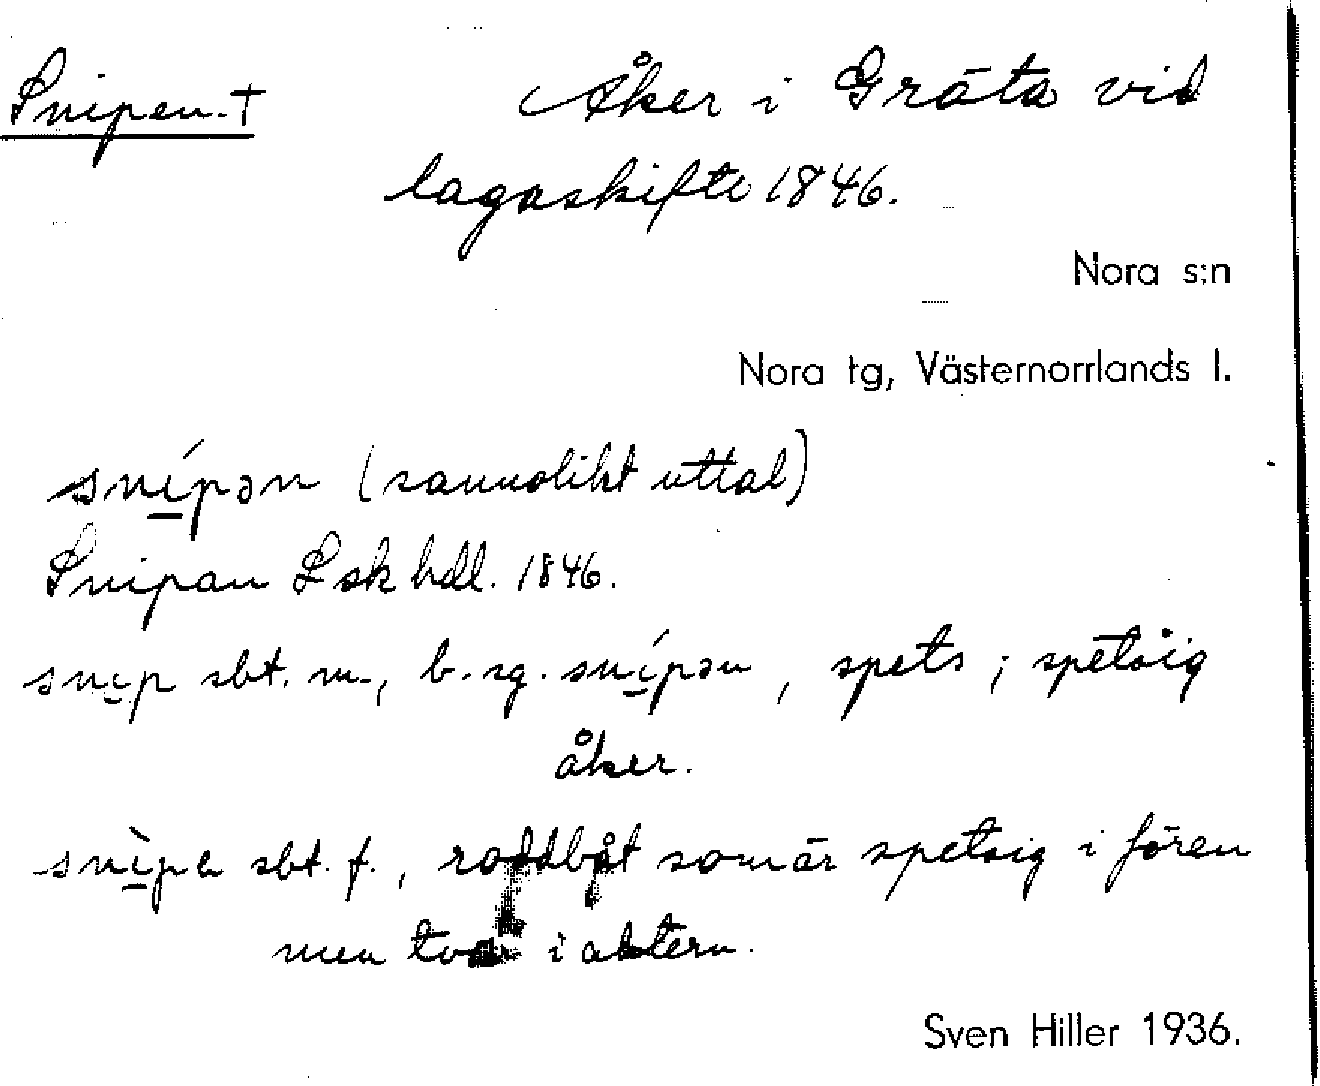 Snipen. † Åker i Gräta vid
lagaskifte 1846.
Nora s:n
Nora tg, Västernorrlands l.
snípən (sannolikt uttal)
Snipan L sk hdl. 1846.
snip sbt. m., b. sg. snípən, spets; spetsig
åker.
snìpa sbt. f., roddbåt som är spetsig i fören
men tvär i aktern.
Sven Hiller 1936.